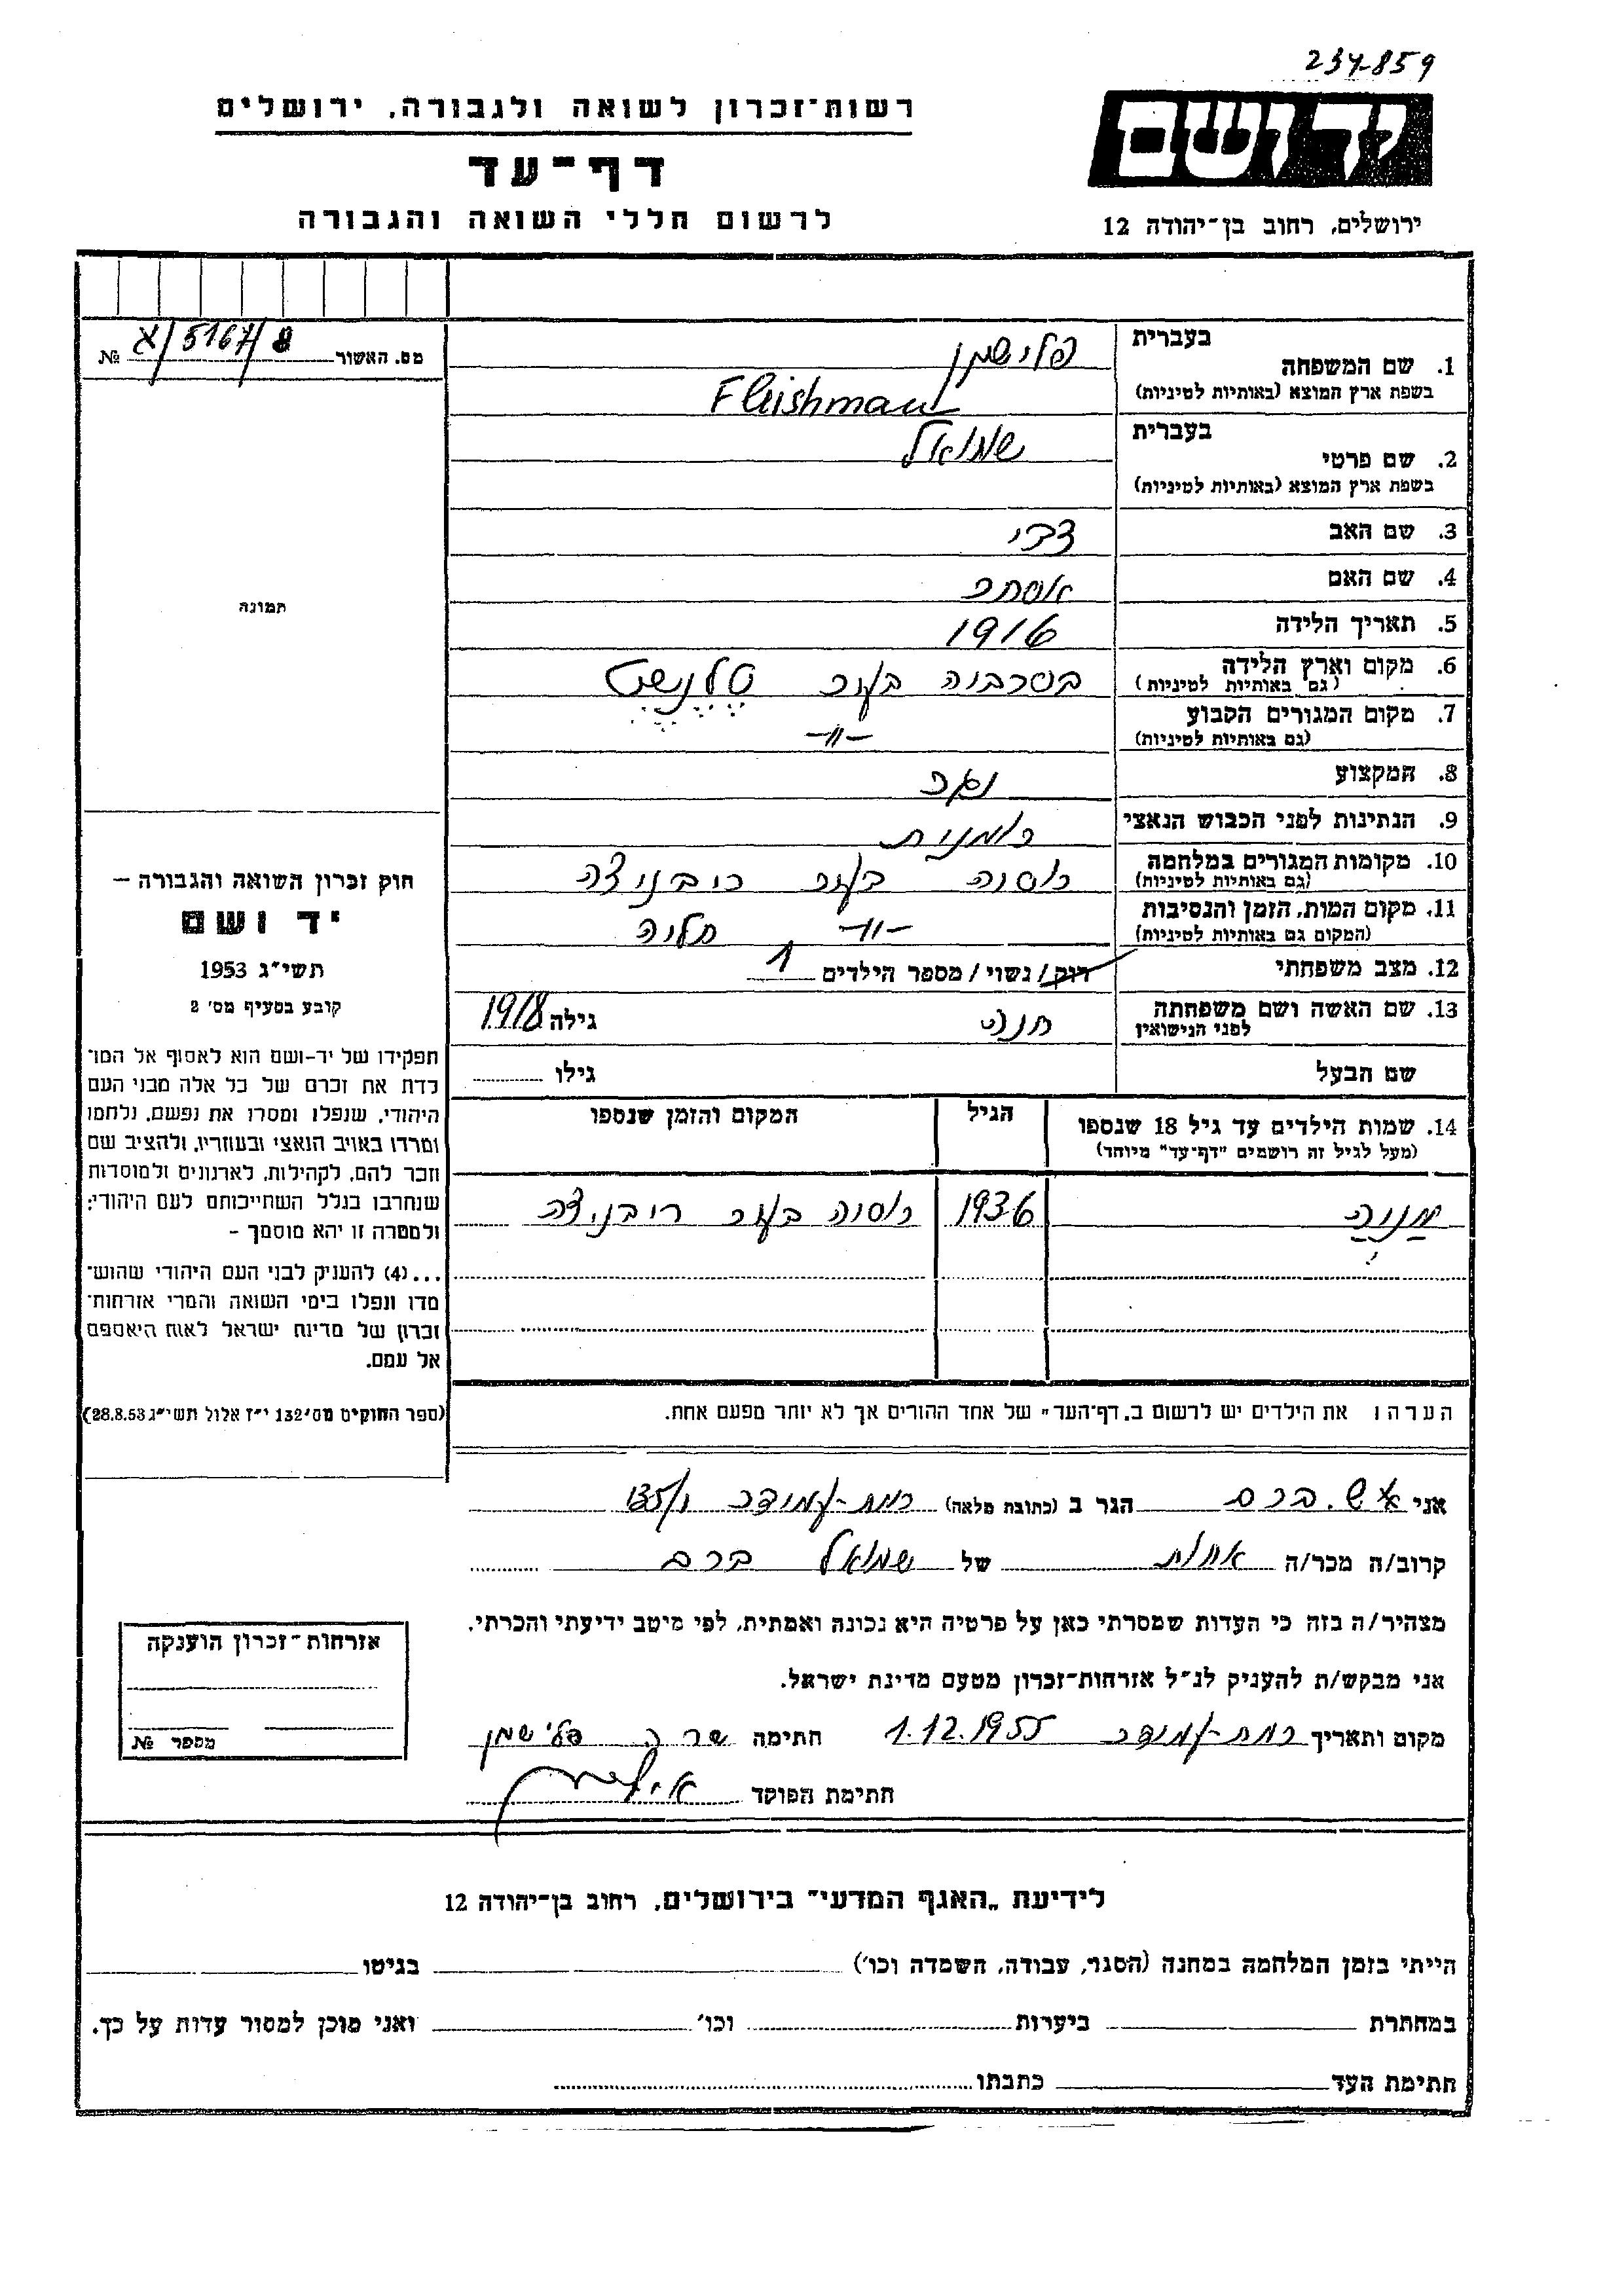 234-859
יד ושם
רשות־זכרון לשואה ולגבורה, ירושלים
דף־עד
לרשום חללי השואה והגבורה
ירושלים, רחוב בן־יהודה 12
בעברית
1. שם המשפחה פלישמן
בשפת ארץ המוצא (באותיות לטיניות) Fleishman
בעברית
2. שם פרטי שמואל
בשפת ארץ המוצא (באותיות לטיניות)
3. שם האב צבי
4. שם האם אסתר
5. תאריך הלידה 1916
6. מקום וארץ הלידה בסרביה בעיר טלנשט
(גם באותיות לטיניות)
7. מקום המגורים הקבוע -"-
(גם באותיות לטיניות)
8. המקצוע נגר
9. הנתינות לפני הכבוש הנאצי רומנית
10. מקומות המגורים במלחמה רוסיה בעיר ריבניצה
(גם באותיות לטיניות)
11. מקום המות, הזמן והנסיבות -"- תליה
(המקום גם באותיות לטיניות)
12. מצב משפחתי רווק / נשוי / מספר הילדים 1
13. שם האשה ושם משפחתה חנה גילה 1918
לפני הנישואין
שם הבעל גילו
14. שמות הילדים עד גיל 18 שנספו הגיל המקום והזמן שנספו
(מעל לגיל זה רושמים "דף־עד" מיוחד)
מניה 1936 רוסיה בעיר ריבניצה
הערה ו את הילדים יש לרשום ב„דף־העד" של אחד ההורים אך לא יותר מפעם אחת.
מס. האשור 8/5167/א №
תמונה
חוק זכרון השואה והגבורה –
יד ושם
תשי"ג 1953
קובע בסעיף מס' 2
תפקידו של יד-ושם הוא לאסוף אל המו־
לדת את זכרם של כל אלה מבני העם
היהודי, שנפלו ומסרו את נפשם, נלחמו
ומרדו באויב הנאצי ובעוזריו, ולהציב שם
וזכר להם, לקהילות, לארגונים ולמוסדות
שנחרבו בגלל השתייכותם לעם היהודי;
ולמטרה זו יהא מוסמך –
...(4) להעניק לבני העם היהודי שהוש־
מדו ונפלו בימי השואה והמרי אזרחות־
זכרון של מדינת ישראל לאות היאספם
אל עמם.
(ספר החוקים מס' 132 י"ז אלול תשי"ג 28.8.53)
אני הגר ב (כתובת מלאה) רמת-עמידר 135/1
קרוב/ה מכר/ה אחות של שמואל
מצהיר/ה בזה כי העדות שמסרתי כאן על פרטיה היא נכונה ואמתית, לפי מיטב ידיעתי והכרתי.
אני מבקש/ת להעניק לנ"ל אזרחות־זכרון מטעם מדינת ישראל.
מקום ותאריך רמת-עמידר 1.12.1955 חתימה שרה פלישמן
חתימת הפוקד
אזרחות־זכרון הוענקה
מספר №
לידיעת „האגף המדעי" בירושלים, רחוב בן־יהודה 12
הייתי בזמן המלחמה במחנה (הסגר, עבודה, השמדה וכו') בגיטו
במחתרת ביערות וכו' ואני מוכן למסור עדות על כך.
חתימת העד כתבתו